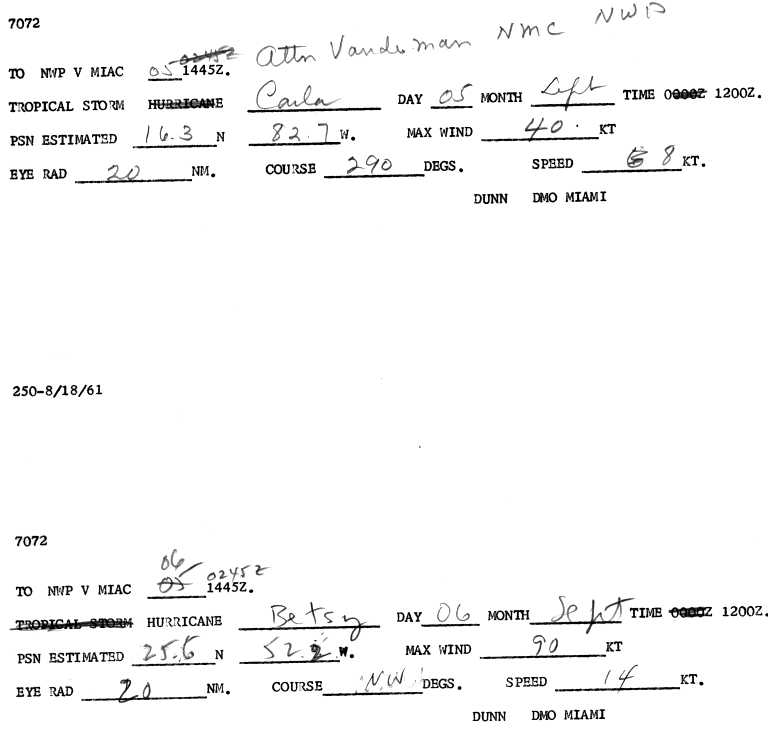 7072
Attn Vanderman NMC NWP
TO NWP V MIAC 05 0245Z 1445Z.
TROPICAL STORM HURRICANE Carla DAY 05 MONTH Sept TIME 0000Z 1200Z.
PSN ESTIMATED 16.3 N 82.7 W. MAX WIND 40. KT
EYE RAD 20 NM. COURSE 290 DEGS. SPEED 8 KT.
DUNN DMO MIAMI
250-8/18/61
7072
06
TO NWP V MIAC 05 0245Z 1445Z.
TROPICAL STORM HURRICANE Betsy DAY 06 MONTH Sept TIME 0000Z 1200Z.
PSN ESTIMATED N W. MAX WIND 90 KT
EYE RAD 20 NM. COURSE N.W. DEGS. SPEED 14 KT.
DUNN DMO MIAMI